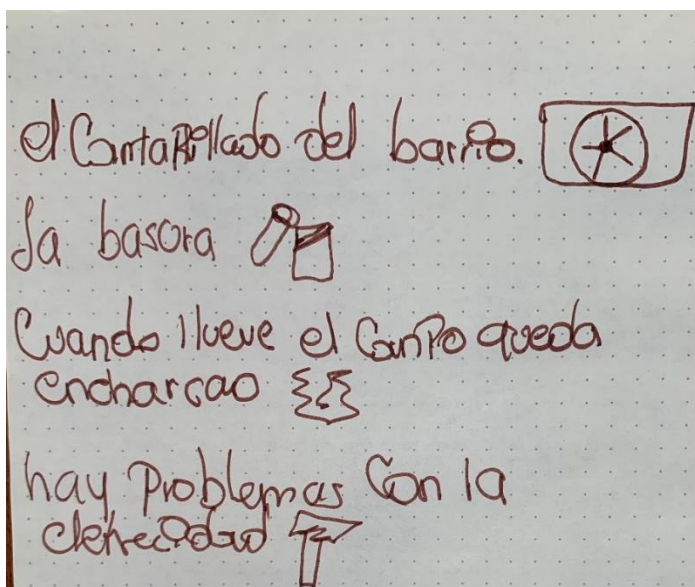 el CantaRillado del barrio.
la basora
Cuando llueve el CanPo queda
encharcao
hay Problemas Con la